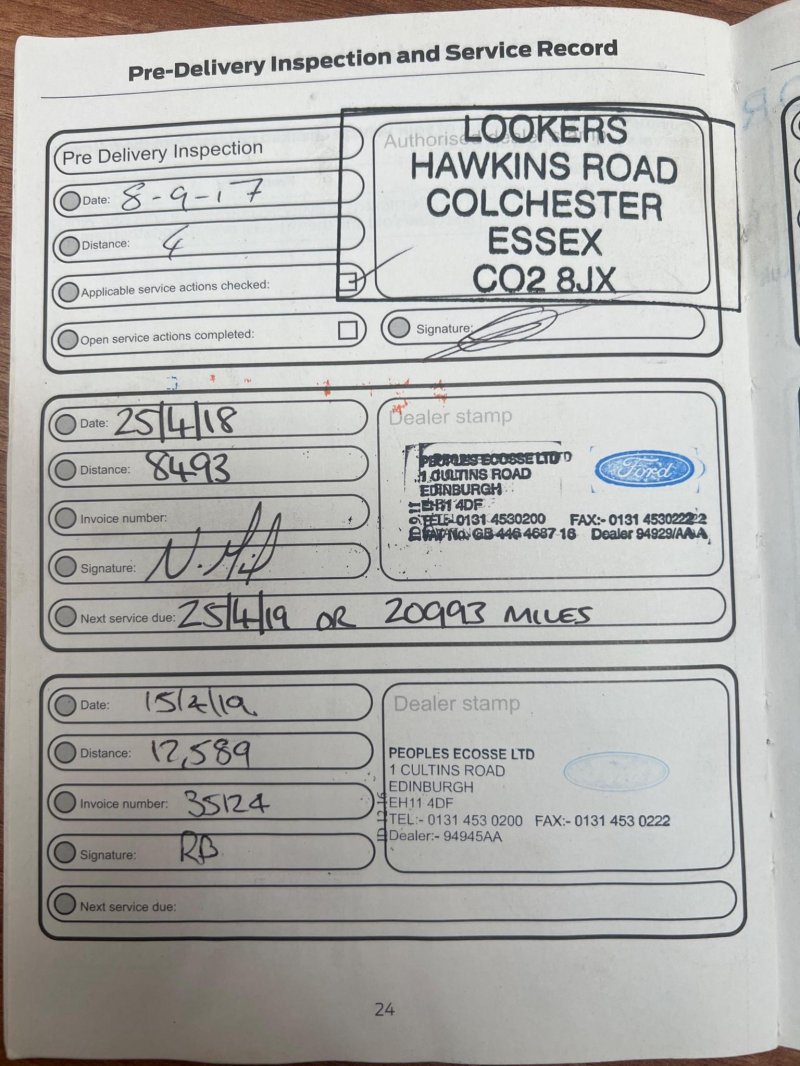 Pre-Delivery Inspection and Service Record
Pre Delivery Inspection
Date: 8-9-17
Distance: 4
Applicable service actions checked:
Open service actions completed:
Authorised dealer stamp
LOOKERS
HAWKINS ROAD
COLCHESTER
ESSEX
CO2 8JX
Signature:
Date: 25/4/18
Distance: 8493
Invoice number:
Signature:
Next service due: 25/4/19 OR 20993 MILES
Dealer stamp
PEOPLES ECOSSE LTD
1 CULTINS ROAD
EDINBURGH
EH11 4DF
TEL:- 0131 4530200 FAX:- 0131 4530222
VAT No. GB 446 4687 16 Dealer 94929/AA
ID 9.11
Ford
Date: 15/4/19
Distance: 12,589
Invoice number: 35124
Signature: RB
Next service due:
Dealer stamp
PEOPLES ECOSSE LTD
1 CULTINS ROAD
EDINBURGH
EH11 4DF
TEL:- 0131 453 0200 FAX:- 0131 453 0222
Dealer:- 94945AA
ID 12.16
24